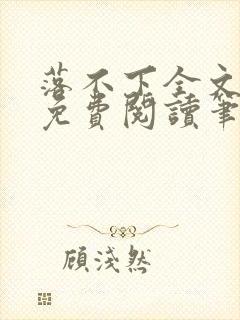 落不下全文
免費閱讀筆
顧淺然